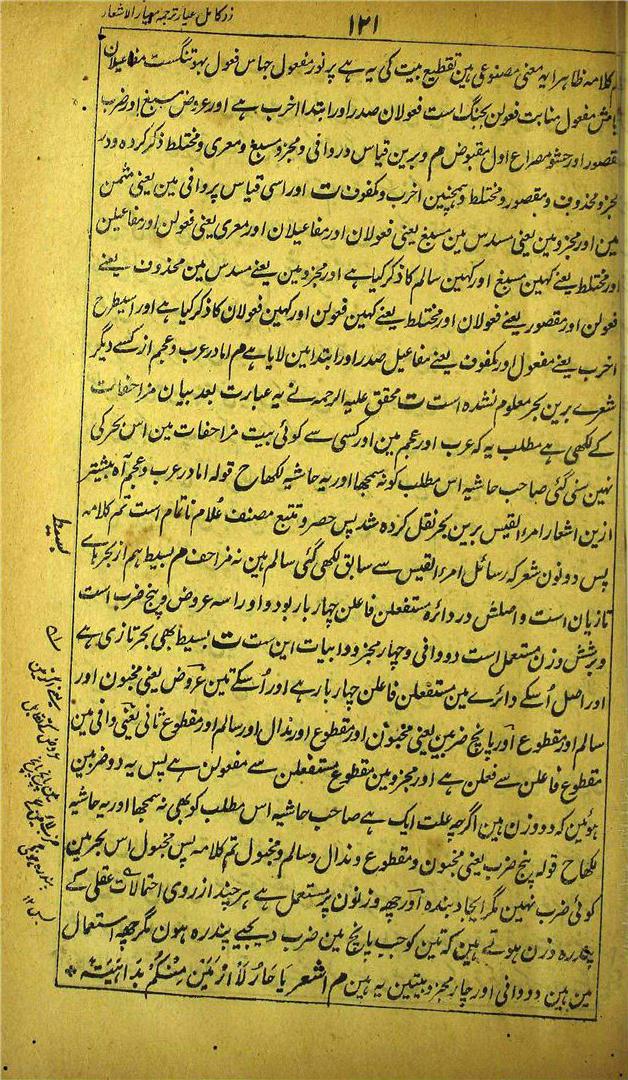 زر کامل عیار ترجمہ معیار الاشعار
۱۲۱
کلامہ ظاہرا یہ معنی مصنوعی ہین تقطیع بیت کی یہ ہے پر نور مفعول جہاس فعول بہوتنگست مفاعیلان
مفعول منابت فعولن بجنگ است فعولان صدر اور ابتدا اخرب ہے اور عروض مسبغ اور ضرب
مقصور اور حشو مصراع اول مقبوض م و برین قیاس در وافی و مجزو مسبغ و معری و مختلط ذکر کردہ و در
مجزو محذوف و مقصور و مختلط و ہمچنین اخرب و مکفوف ت اور اسی قیاس پر وافی مین یعنی مثمن
مین اور مجزو مین یعنی مسدس مین مسبغ یعنی فعولان اور مفاعیلان اور معری یعنی فعولن اور مفاعیلن
اور مختلط یعنے کہین مسبغ اور کہین سالم کا ذکر کیا ہے اور مجزو مین یعنے مسدس مین محذوف یعنے
فعولن اور مقصور یعنے فعولان اور مختلط یعنے کہین فعولن اور کہین فعولان کا ذکر کیا ہے اور اسیطرح
اخرب یعنے مفعول اور مکفوف یعنے مفاعیل صدر اور ابتدا مین لایا ہے م اما در عرب و عجم از کسے دیگر
شعرے برین بحر معلوم نشدہ است ت محقق علیہ الرحمہ نے یہ عبارت بعد بیان مزاحفات
کے لکھی ہے مطلب یہ کہ عرب اور عجم مین اور کسی سے کوئی بیت مزاحفات مین اس بحر کی
نہین سنی گئی صاحب حاشیہ اس مطلب کو نہ سمجھا اور یہ حاشیہ لکھا ح قولہ اما در عرب و عجم آہ بیشتر
ازین اشعار امرء القیس برین بحر نقل کردہ شد پس حصر و تتبع مصنف علام ناتمام است تم کلامہ
پس دونون شعر کہ رسائل امرء القیس سے سابق لکھی گئی سالم ہین نہ مزاحف م بسیط ہم از بحرہاے
تازیان است و اصلش در دائرہ مستفعلن فاعلن چہار بار بود و اورا سہ عروض و پنج ضرب است
و بر شش وزن مستعمل است دو وافی و چہار مجزو و ابیات این ست ت بسیط بھی بحر تازی ہے
اور اصل اُسکے دائرے مین مستفعلن فاعلن چہار بار ہے اور اُسکے تین عروض یعنی مخبون اور
سالم اور مقطوع اور پانچ ضربین یعنی مخبون اور مقطوع اور مذال اور سالم اور مقطوع ثانی یعنی وافی مین
مقطوع فاعلن سے فعلن ہے اور مجزو مین مقطوع مستفعلن سے مفعولن ہے پس یہ دو ضربین
ہوئین کہ دو وزن ہین اگرچہ علت ایک ہے صاحب حاشیہ اس مطلب کو بھی نہ سمجھا اور یہ حاشیہ
لکھا ح قولہ پنج ضرب یعنی مخبون و مقطوع و مذال و سالم و مخبول تم کلامہ پس مخبول اس بحر مین
کوئی ضرب نہین مگر ایجاد بندہ اور چھہ وزنون پر مستعمل ہے ہر چند از روی احتمالات عقلی کے
پندرہ وزن ہوتے ہین کہ تین کو جب پانچ مین ضرب دیجیے پندرہ ہون مگر چھہ استعمال
مین ہین دو وافی اور چار مجزو بیتین یہ ہین م شعر یا حَارُ لَا اُرْمَیَنْ مِنْکُمْ بِدَاہِیَۃٍ *
بسیط